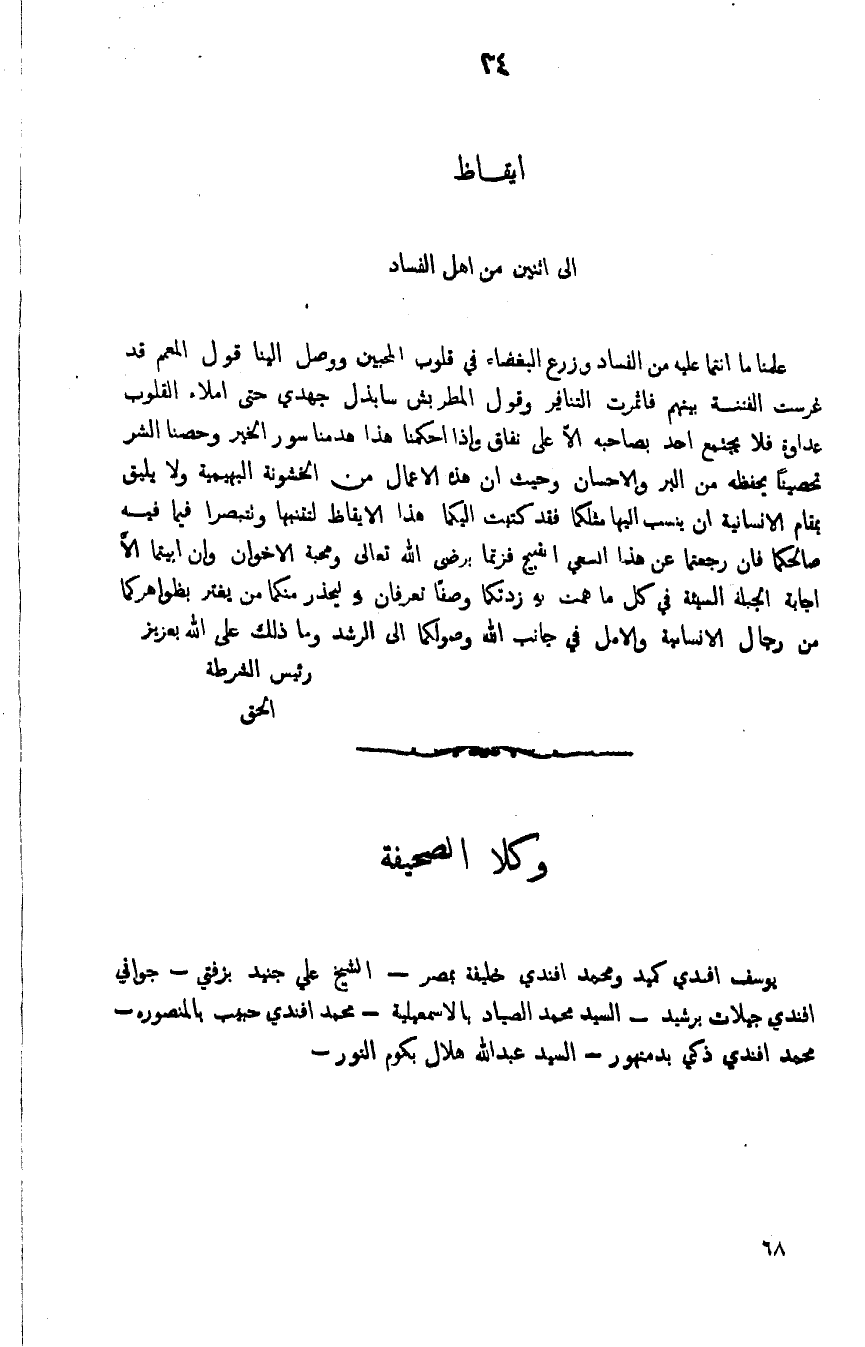 ٣٤
ايقـاظ
الى اثنين من اهل الفساد
علمنا ما انتما عليه من الفساد وزرع البغضاء في قلوب المحبين ووصل الينا قول المعم قد
غرست الفتنـة بينهم فاثمرت التنافر وقول المطربش سابذل جهدي حتى املاء القلوب
عداوة فلا يجتمع احد بصاحبه الاّ على نفاق وإذا احكمنا هذا هدمنا سور الخير وحصنا الشر
تحصيناً يحفظه من البر والاحسان وحيث ان هذه الاعمال من الخشونة البهيمية ولا يليق
بمقام الانسانية ان ينسب اليها مثلكما فقد كتبت اليكما هذا الايقاظ لتنتبها وتتبصرا فيما فيـه
صالحكما فان رجعتما عن هذا السعي القبيح فزتما برضى الله تعالى ومحبة الاخوان وإن ابيتما الاّ
اجابة الجبلة السيئة في كل ما همت به زدتكما وصفاً تعرفان و ليحذر منكما من يغتر بظواهركما
من رجال الانسانية والامل في جانب الله وصولكما الى الرشد وما ذلك على الله بعزيز
رئيس الشرطة
الحق
وكلا الصحيفة
يوسف افندي كميد ومحمد افندي خليفة بمصر – الشيخ علي جنيد بزفتي – جوافي
افندي جيلات برشيد – السيد محمد الصياد بالاسمعيلية – محمد افندي حبيب بالمنصوره –
محمد افندي ذكي بدمنهور – السيد عبدالله هلال بكوم النور –
٦٨